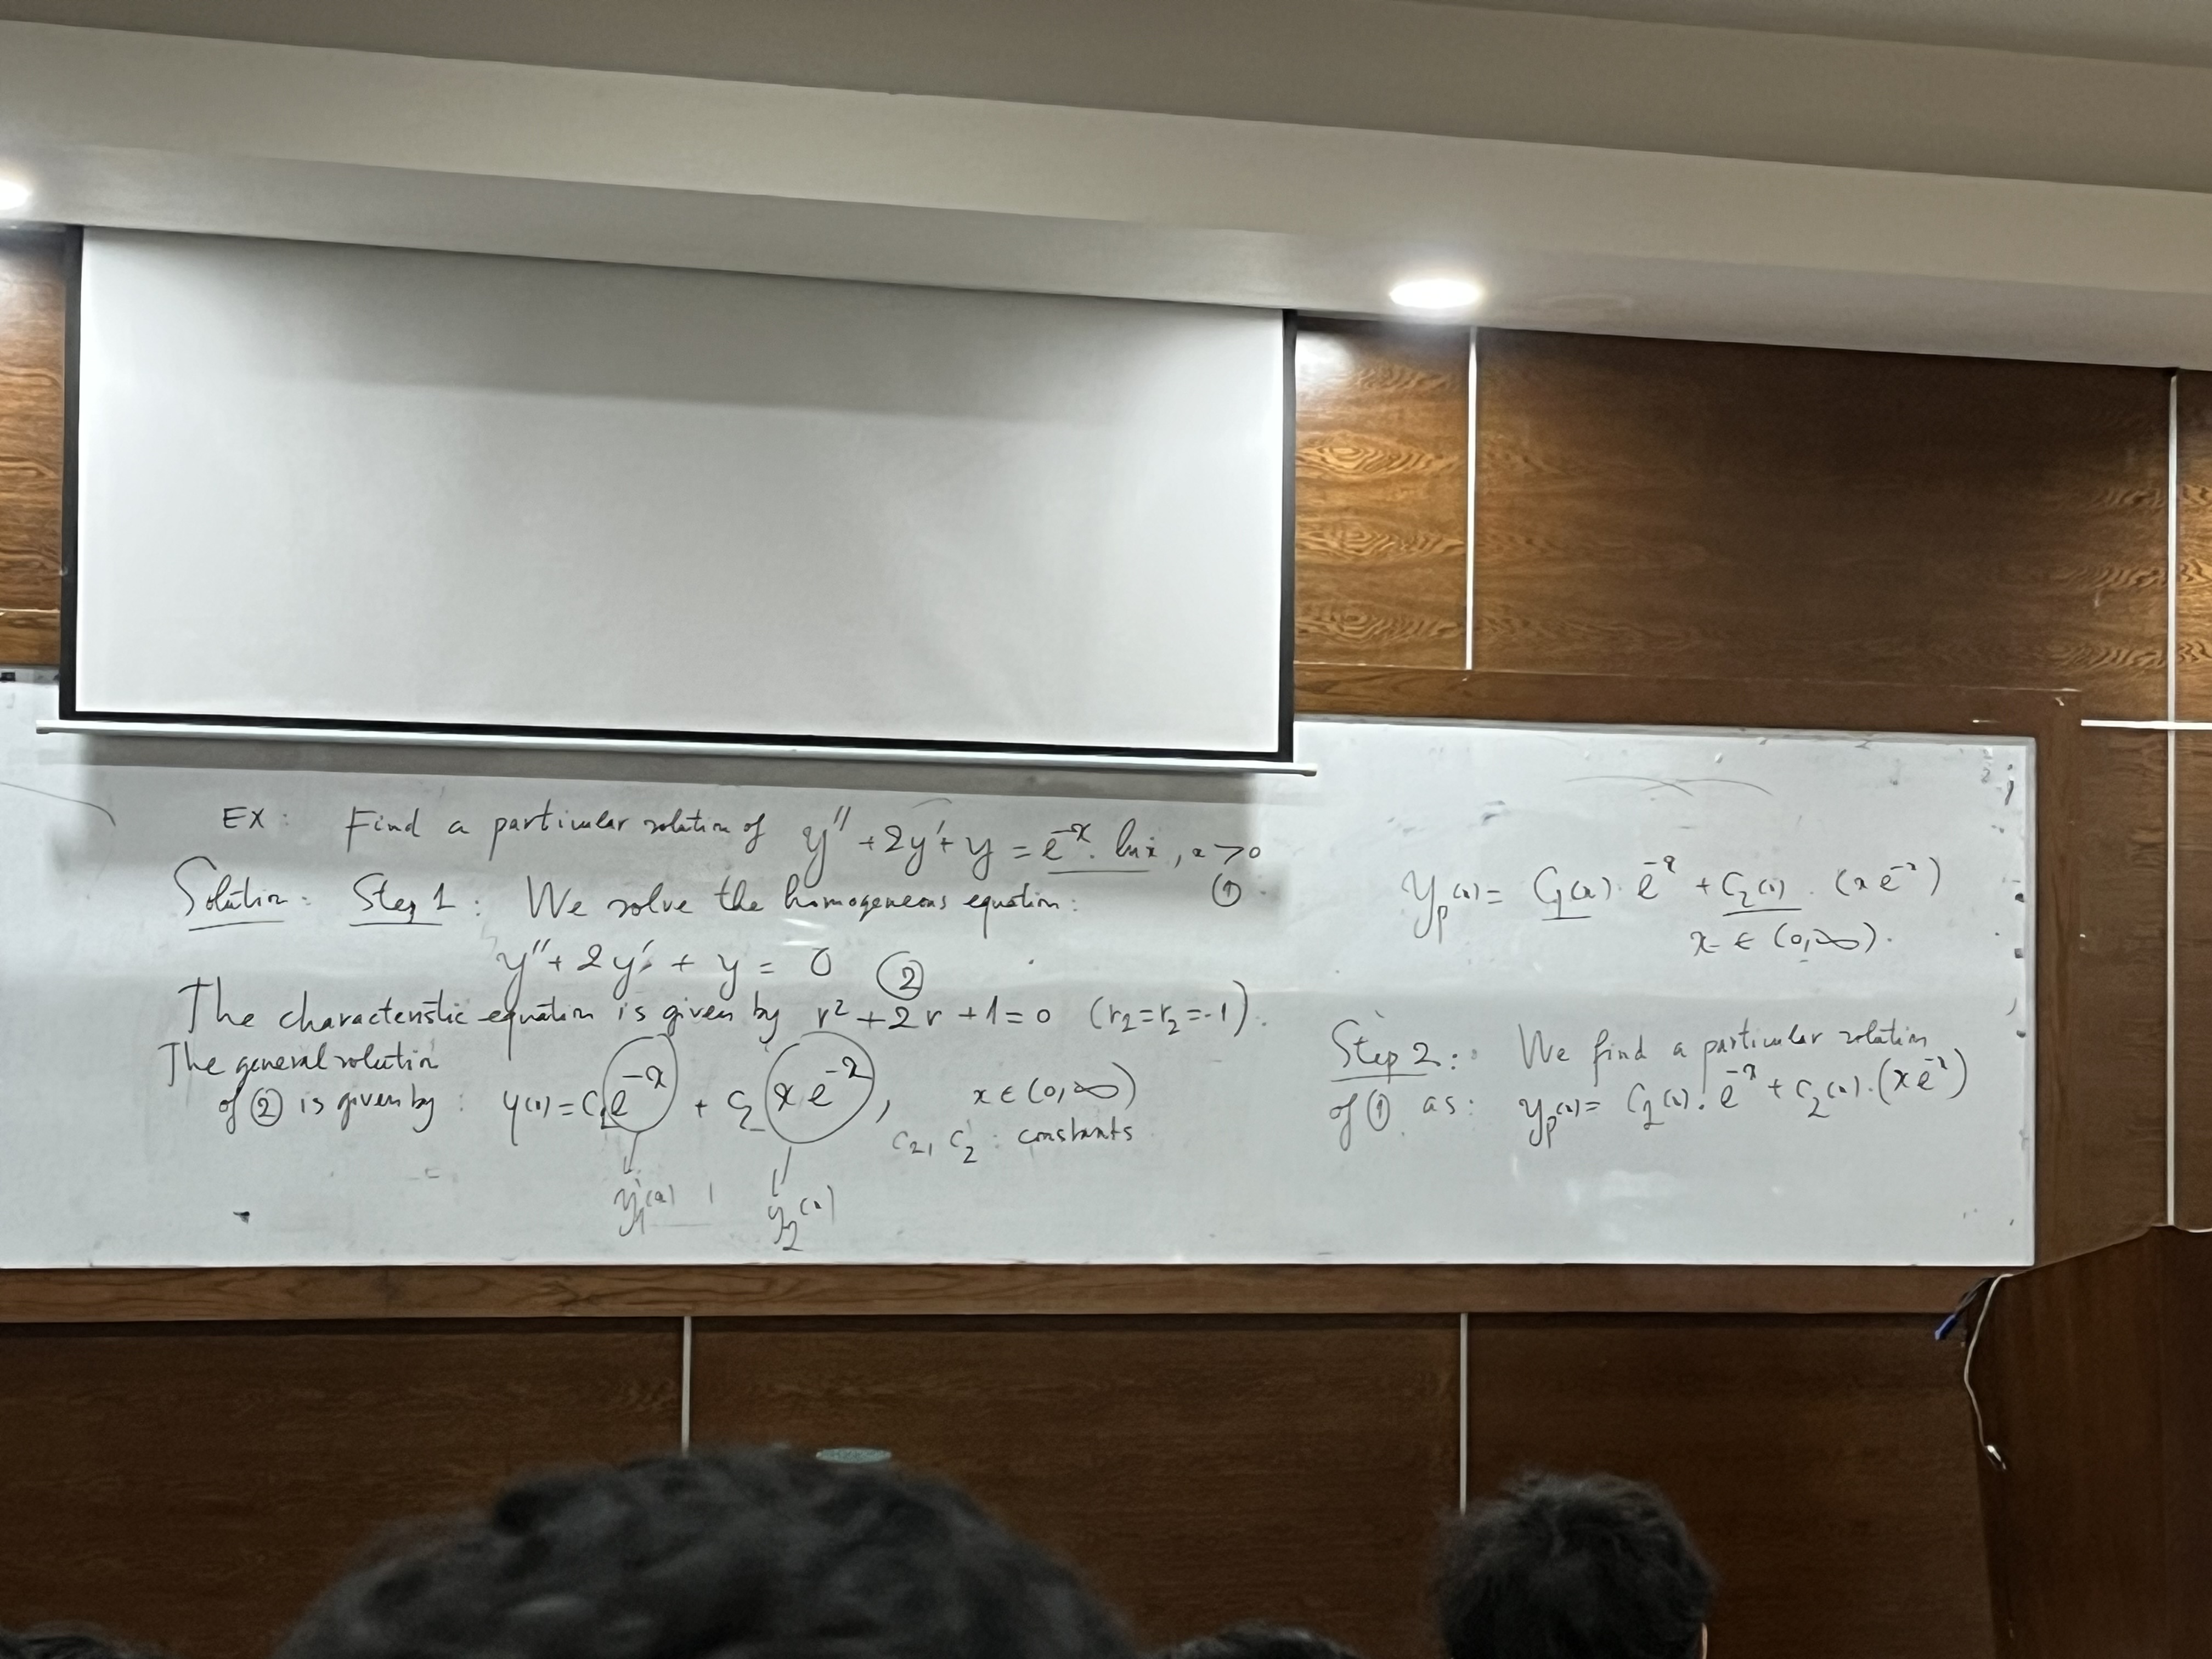 EX: Find a particular solution of y'' + 2y' + y = e^{-x}. ln x, x > 0
①
Solution: Step 1: We solve the homogeneous equation:
y'' + 2y' + y = 0 ②
The characteristic equation is given by r² + 2r + 1 = 0 (r₁ = r₂ = -1).
The general solution
of ② is given by: y(x) = C₁ e^{-x} + C₂ x e^{-x}, x ∈ (0, ∞)
C₁, C₂: constants
y₁(x) y₂(x)
y_p(x) = C₁(x). e^{-x} + C₂(x). (x e^{-x})
x ∈ (0, ∞).
Step 2: We find a particular solution
of ① as: y_p(x) = C₁(x). e^{-x} + C₂(x). (x e^{-x})